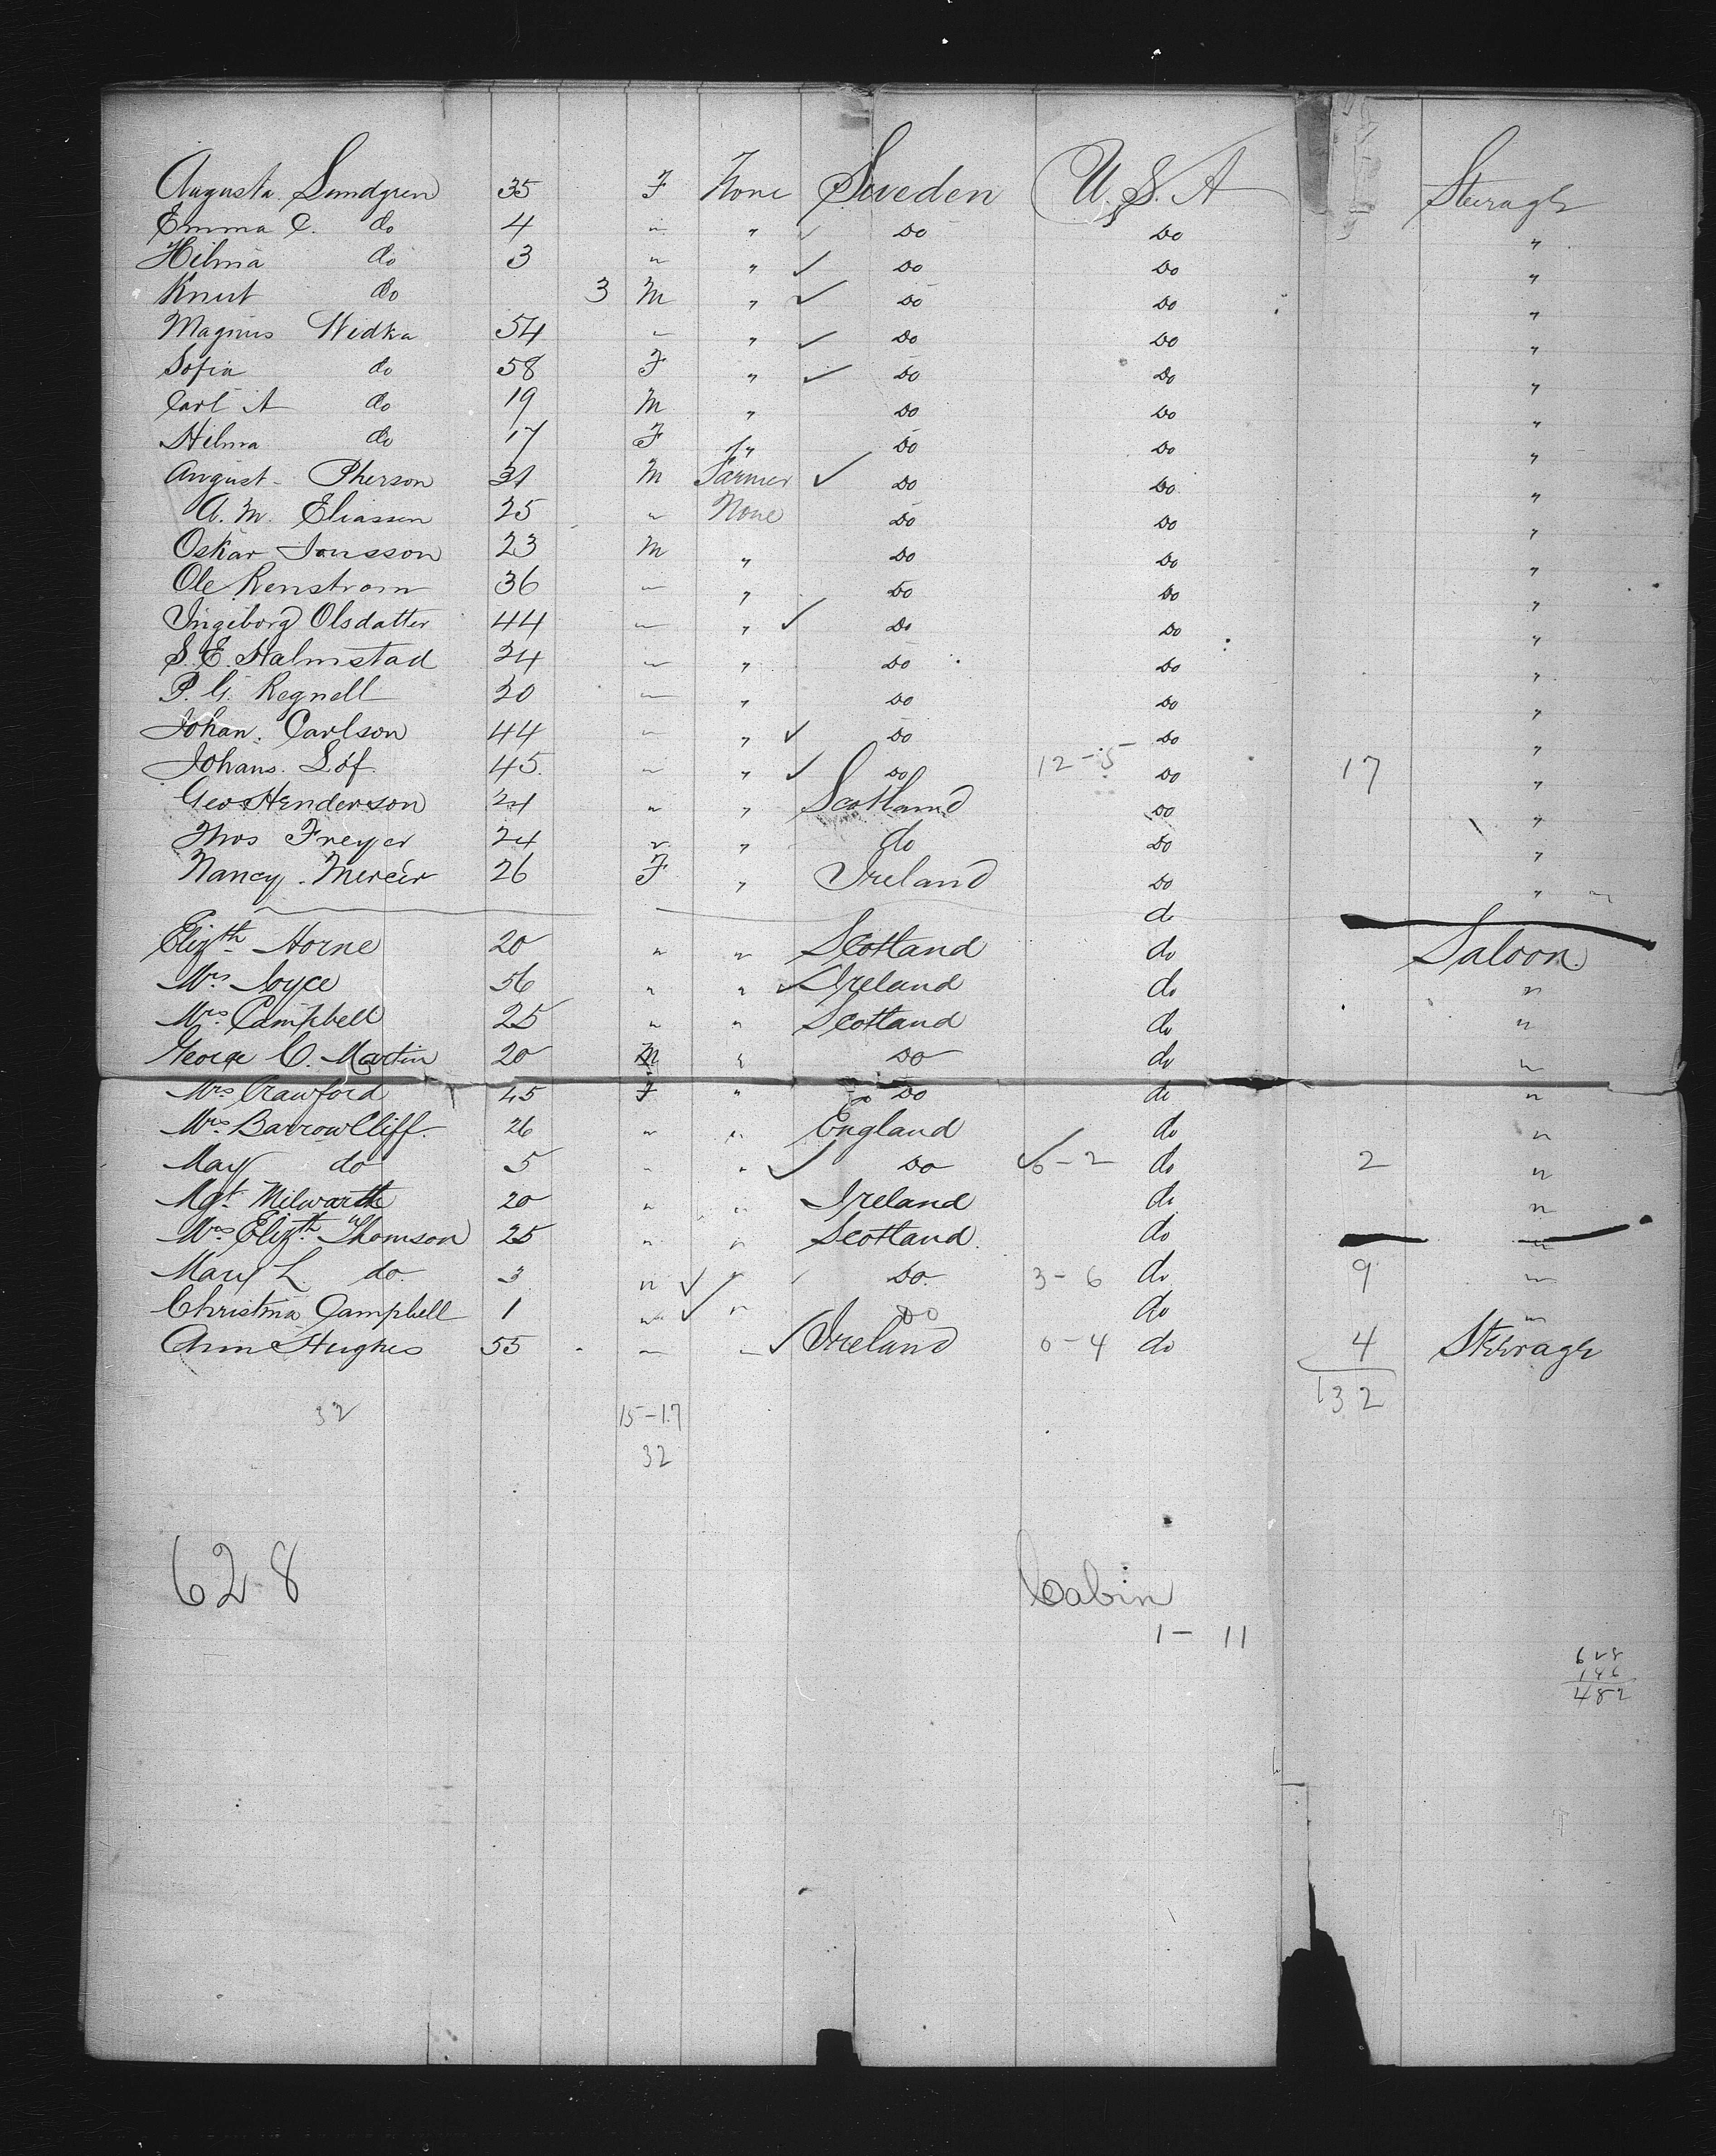 Augusta Lundgren 35 F None Sweden U.S.A Steerage
Emma C. do 4 " " Do Do "
Hilma do 3 " " ✓ Do Do "
Knut do 3 M " ✓ Do Do "
Magnus Widka 54 " " ✓ Do Do "
Sofia do 58 F " ✓ Do Do "
Carl A do 19 M " Do Do "
Hilma do 17 F " Do Do "
August Pherson 31 M Farmer ✓ Do Do "
A. M. Eliassen 25 " None Do Do "
Oskar Jonsson 23 M " Do Do "
Ole Renstrom 36 " " Do Do "
Ingeborg Olsdatter 44 " " ✓ Do Do "
S. E. Halmstad 24 " " Do Do "
P. G. Regnell 20 " " Do Do "
Johan Carlson 44 " " ✓ Do Do "
Johans. Löf 45 " " ✓ Do 12-5 Do 17 "
Geo Henderson 24 " " Scotland Do "
Thos Freyer 24 " " do Do "
Nancy Mercer 26 F " Ireland Do "
do
Elizth Horne 20 " " Scotland do Saloon.
Mrs. Joyce 56 " " ✓ Ireland do "
Mrs. Campbell 25 " " Scotland do "
George C. Martin 20 M " Do do "
Mrs Crawford 45 F " Do do "
Mrs. BarrowCliff. 26 " " England do "
May do 5 " " ✓ Do ✓ 0-2 do 2 "
Mgt. Milwarth 20 " " Ireland do "
Mrs Elizth. Thomson 25 " " Scotland. do "
Mary L. do. 3 " ✓ " Do. 3-6 do 9 "
Christina Campbell 1 " ✓ " Do do "
Ann Hughes 55 " " ✓ Ireland 0-4 do 4 Steerage
132
32 15-17
32
628 Cabin
1- 11
628
146
482